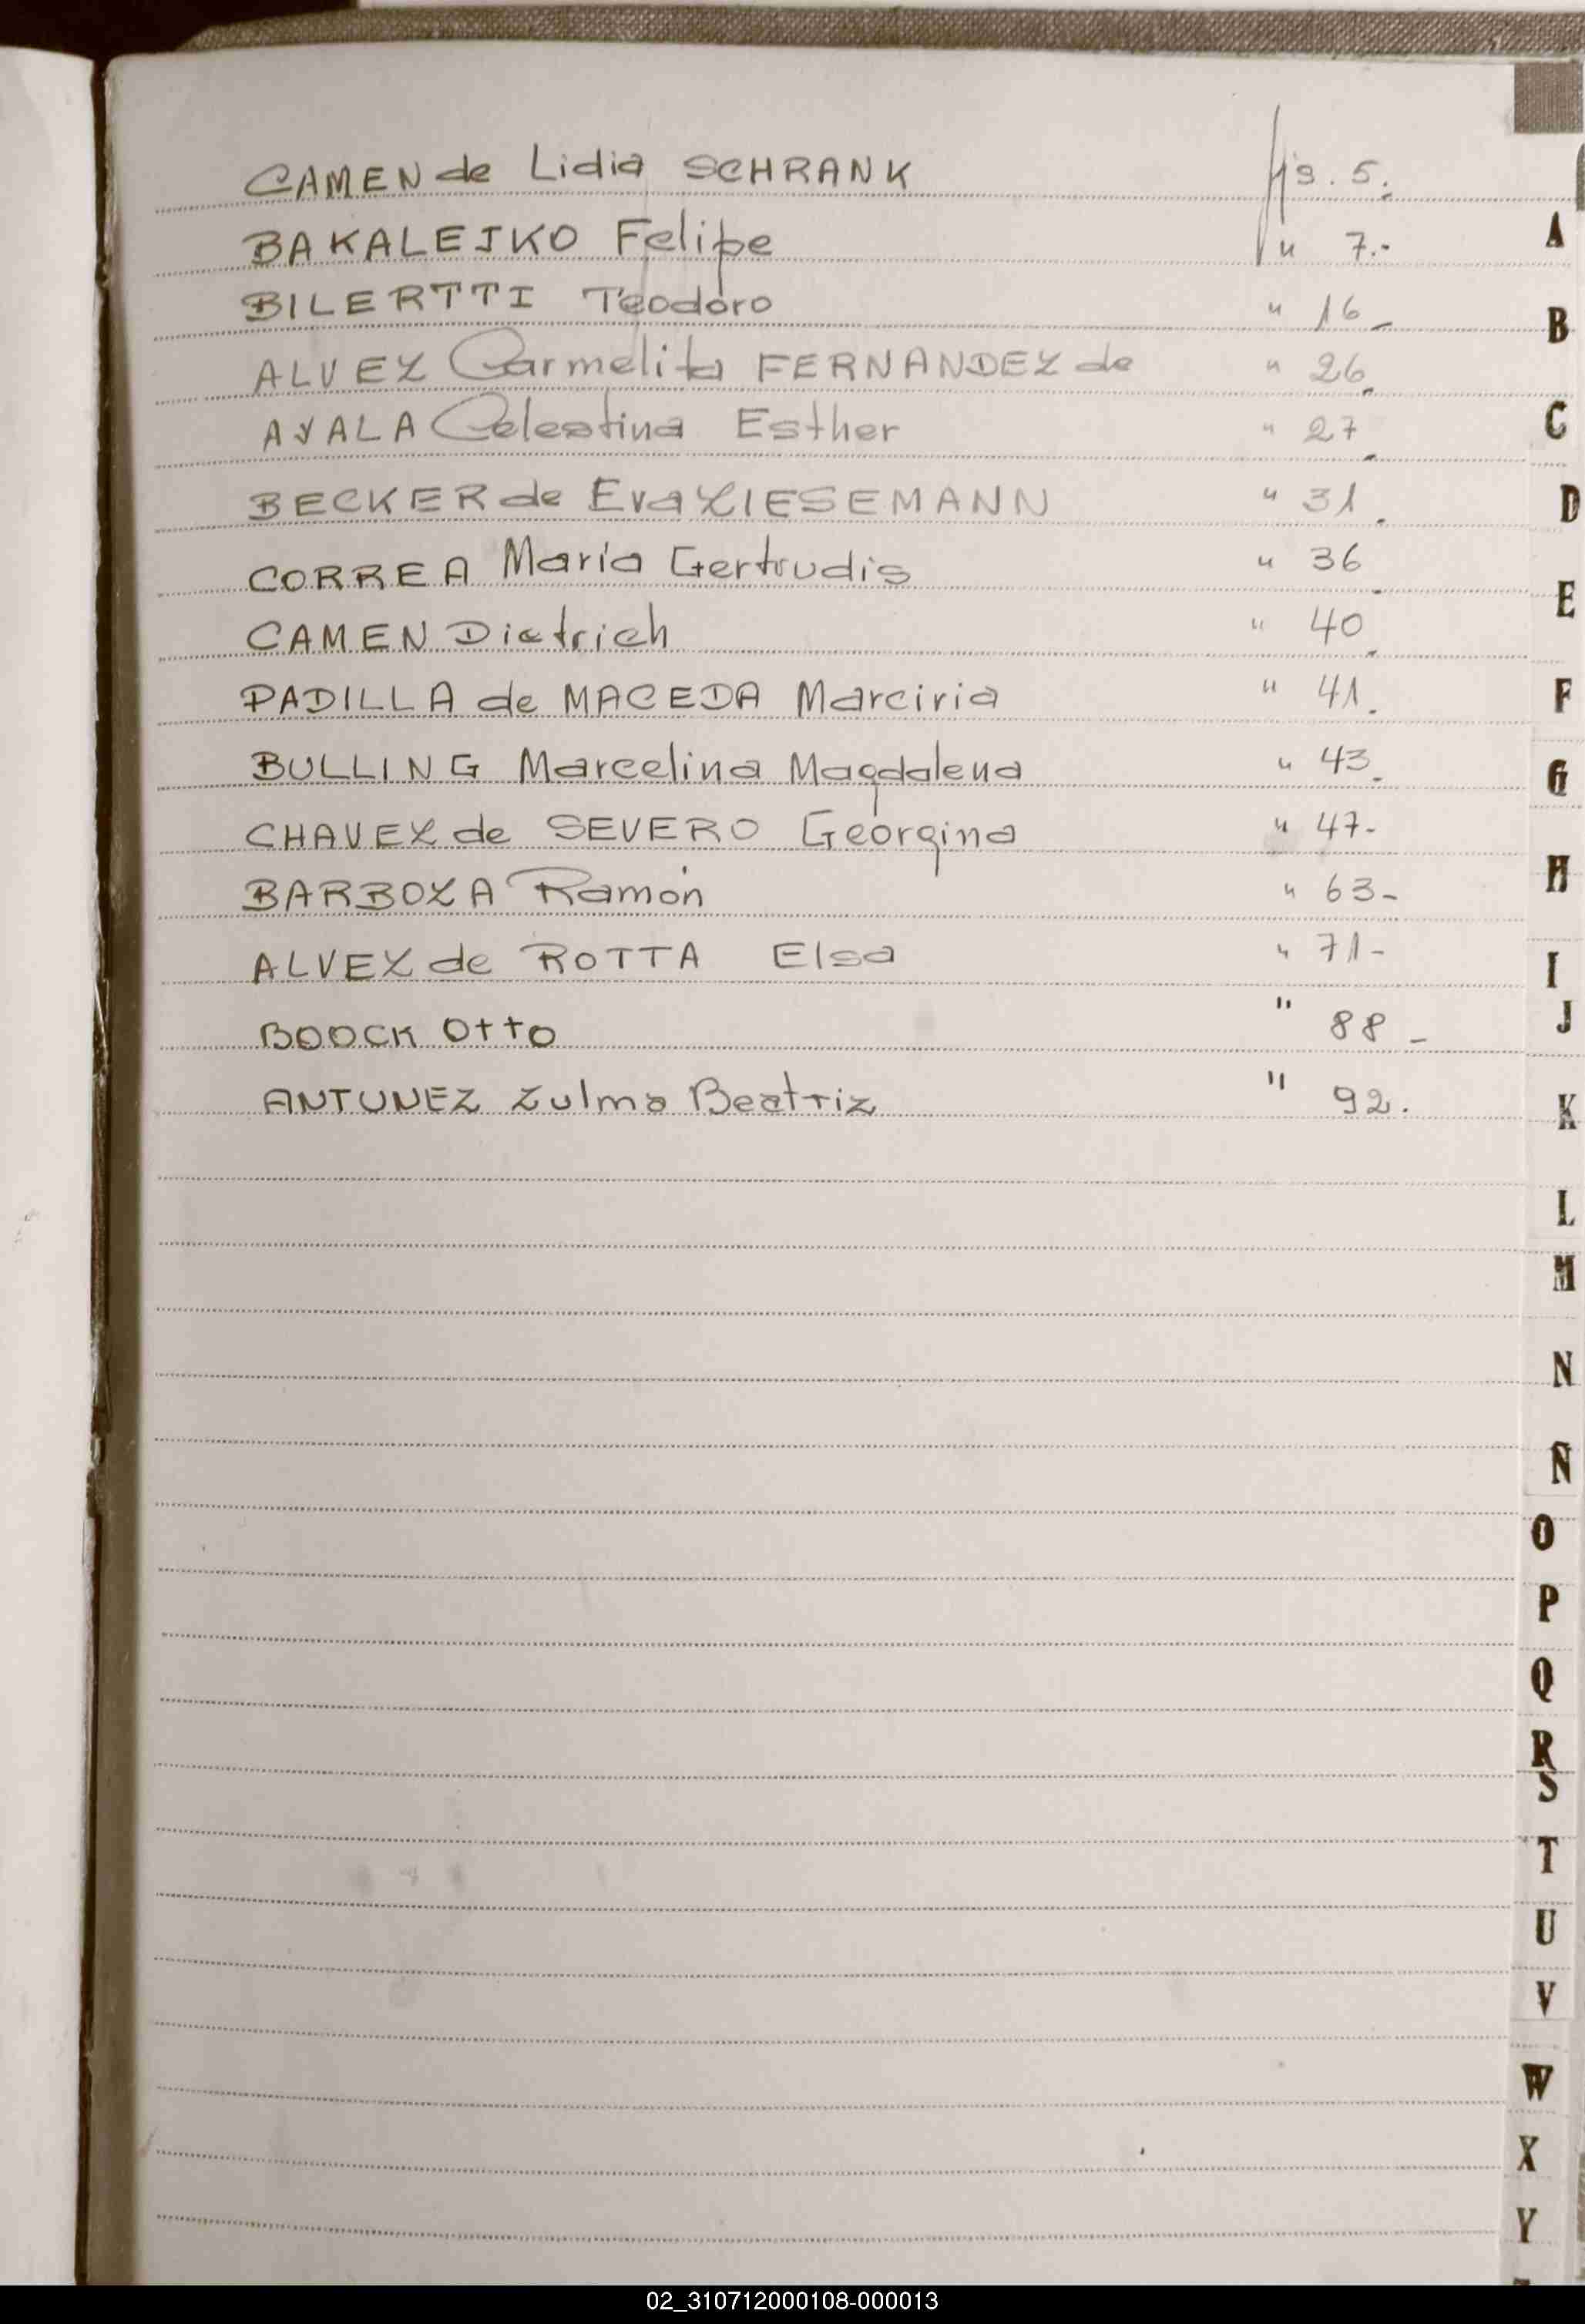 CAMEN de Lidia SCHRANK fjs. 5.-
BAKALEJKO Felipe " 7.-
BILERTTI Teodoro " 16-
ALVEZ Carmelita FERNANDEZ de " 26.
AYALA Celestina Esther " 27.
BECKER de Eva ZIESEMANN " 31.
CORREA María Gertrudis " 36.
CAMEN Dietrich " 40.
PADILLA de MACEDA Marciria " 41.
BULLING Marcelina Magdalena " 43.
CHAVEZ de SEVERO Georgina " 47-
BARBOZA Ramón " 63-
ALVEZ de ROTTA Elsa " 71-
BOOCK Otto " 88-
ANTUNEZ Zulma Beatriz " 92.
A
B
C
D
E
F
G
H
I
J
K
L
M
N
Ñ
O
P
Q
R
S
T
U
V
W
X
Y
02_310712000108-000013